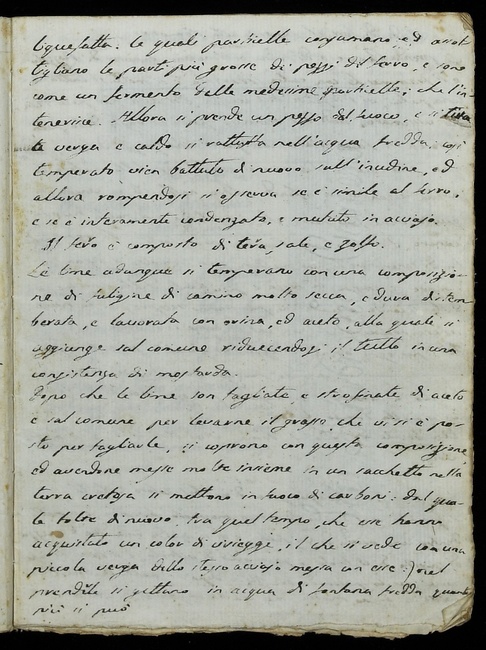 liquefatta: le quali particelle consumano, ed assot-
tigliano le parti più grosse di pezzi del ferro, e sono
come un fermento delle medesime particelle, che l'in-
tenerisce. Allora si prende un pezzo dal fuoco, e si tira
in verga e caldo si rattuffa nell'acqua fredda: così
temperato vien battuto di nuovo sull'incudine, ed
allora rompendosi si osserva se è simile al ferro,
e se è interamente condenzato, e mutato in acciajo.
Il ferro è composto di terra, sale, e zolfo.
Le lime adunque si temperano con una composizio-
ne di fuligine di camino molto secca, e dura di tem-
berata, e lavorata con orina, ed aceto, alla quali si
aggiunge sal comune riducendosi il tutto in una
consistenza di mostarda.
Dopo che le lime son tagliate, e strofinate di aceto
e sal comune per levarne il grasso, che vi si è po-
sto per tagliarle, si coprono con questa composizione,
ed avendone messe molte insieme in un sacchetto nella
terra cretosa si mettono in fuoco di carboni: dal qua-
le tolte di nuovo, tra quel tempo, che esse hanno
acquistato un color di ciriegge, il che si vede con una
piccola verga dello stesso acciajo messa con esse:) nel
prenderle si gettano in acqua di fontana fredda quanto
più si può